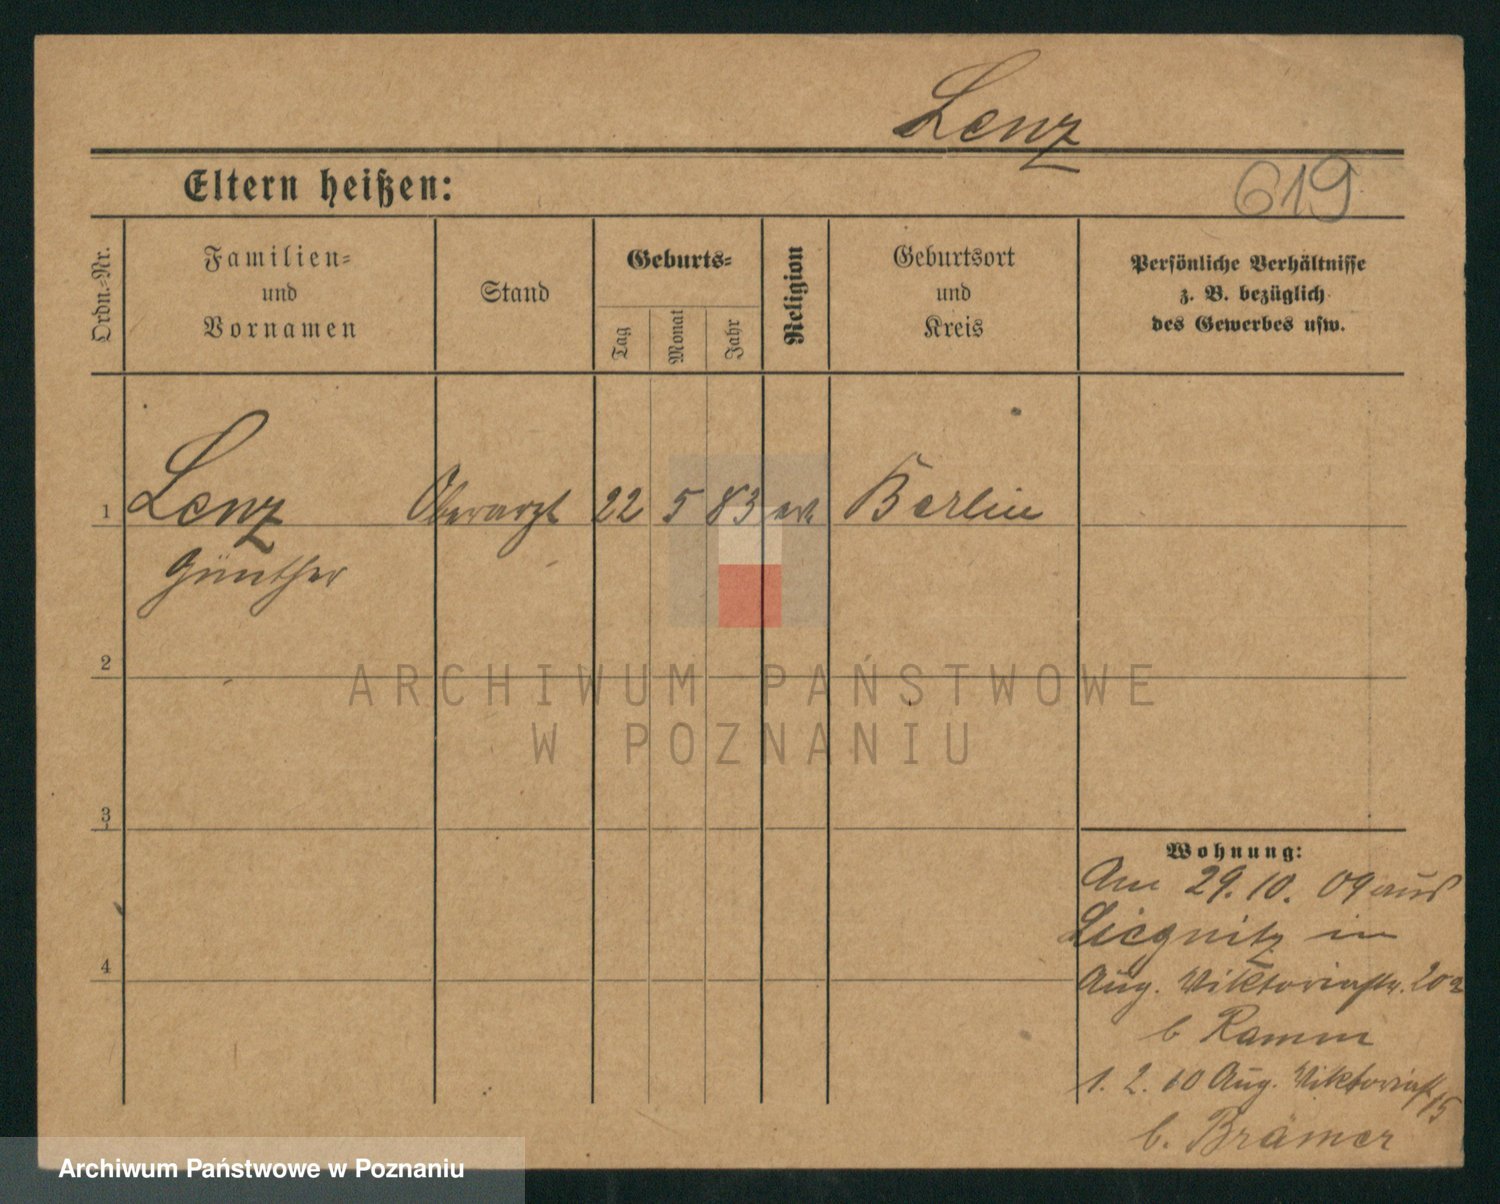 Lenz
Eltern heißen:
619
Ordn.-Nr.
Familien-
und
Vornamen
Stand
Geburts-
Tag
Monat
Jahr
Religion
Geburtsort
und
Kreis
Persönliche Verhältnisse
z. B. bezüglich
des Gewerbes usw.
1 Lenz Oberarzt 22 5 83 evl Berlin
Günther
2
ARCHIWUM PAŃSTWOWE
W POZNANIU
3
Wohnung:
Am 29. 10. 09 aus
Liegnitz in
4
Aug. Viktoriastr. 20a
b Ramm
1. 2. 10 Aug. Viktoriast 15
b. Brämer
Archiwum Państwowe w Poznaniu